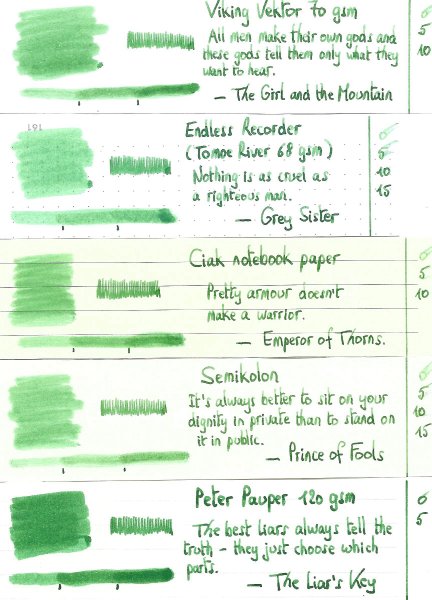 Viking Vektor 70 gsm
All men make their own gods and
these gods tell them only what they
want to hear.
— The Girl and the Mountain
0
5
10
191
Endless Recorder
(Tomoe River 68 gsm)
Nothing is as cruel as
a righteous man.
— Grey Sister
0
5
10
15
Ciak notebook paper
Pretty armour doesn't
make a warrior.
— Emperor of Thorns.
0
5
10
Semikolon
It's always better to sit on your
dignity in private than to stand on
it in public.
— Prince of Fools
0
5
10
15
Peter Pauper 120 gsm
The best liars always tell the
truth - they just choose which
parts.
— The Liar's Key
0
5